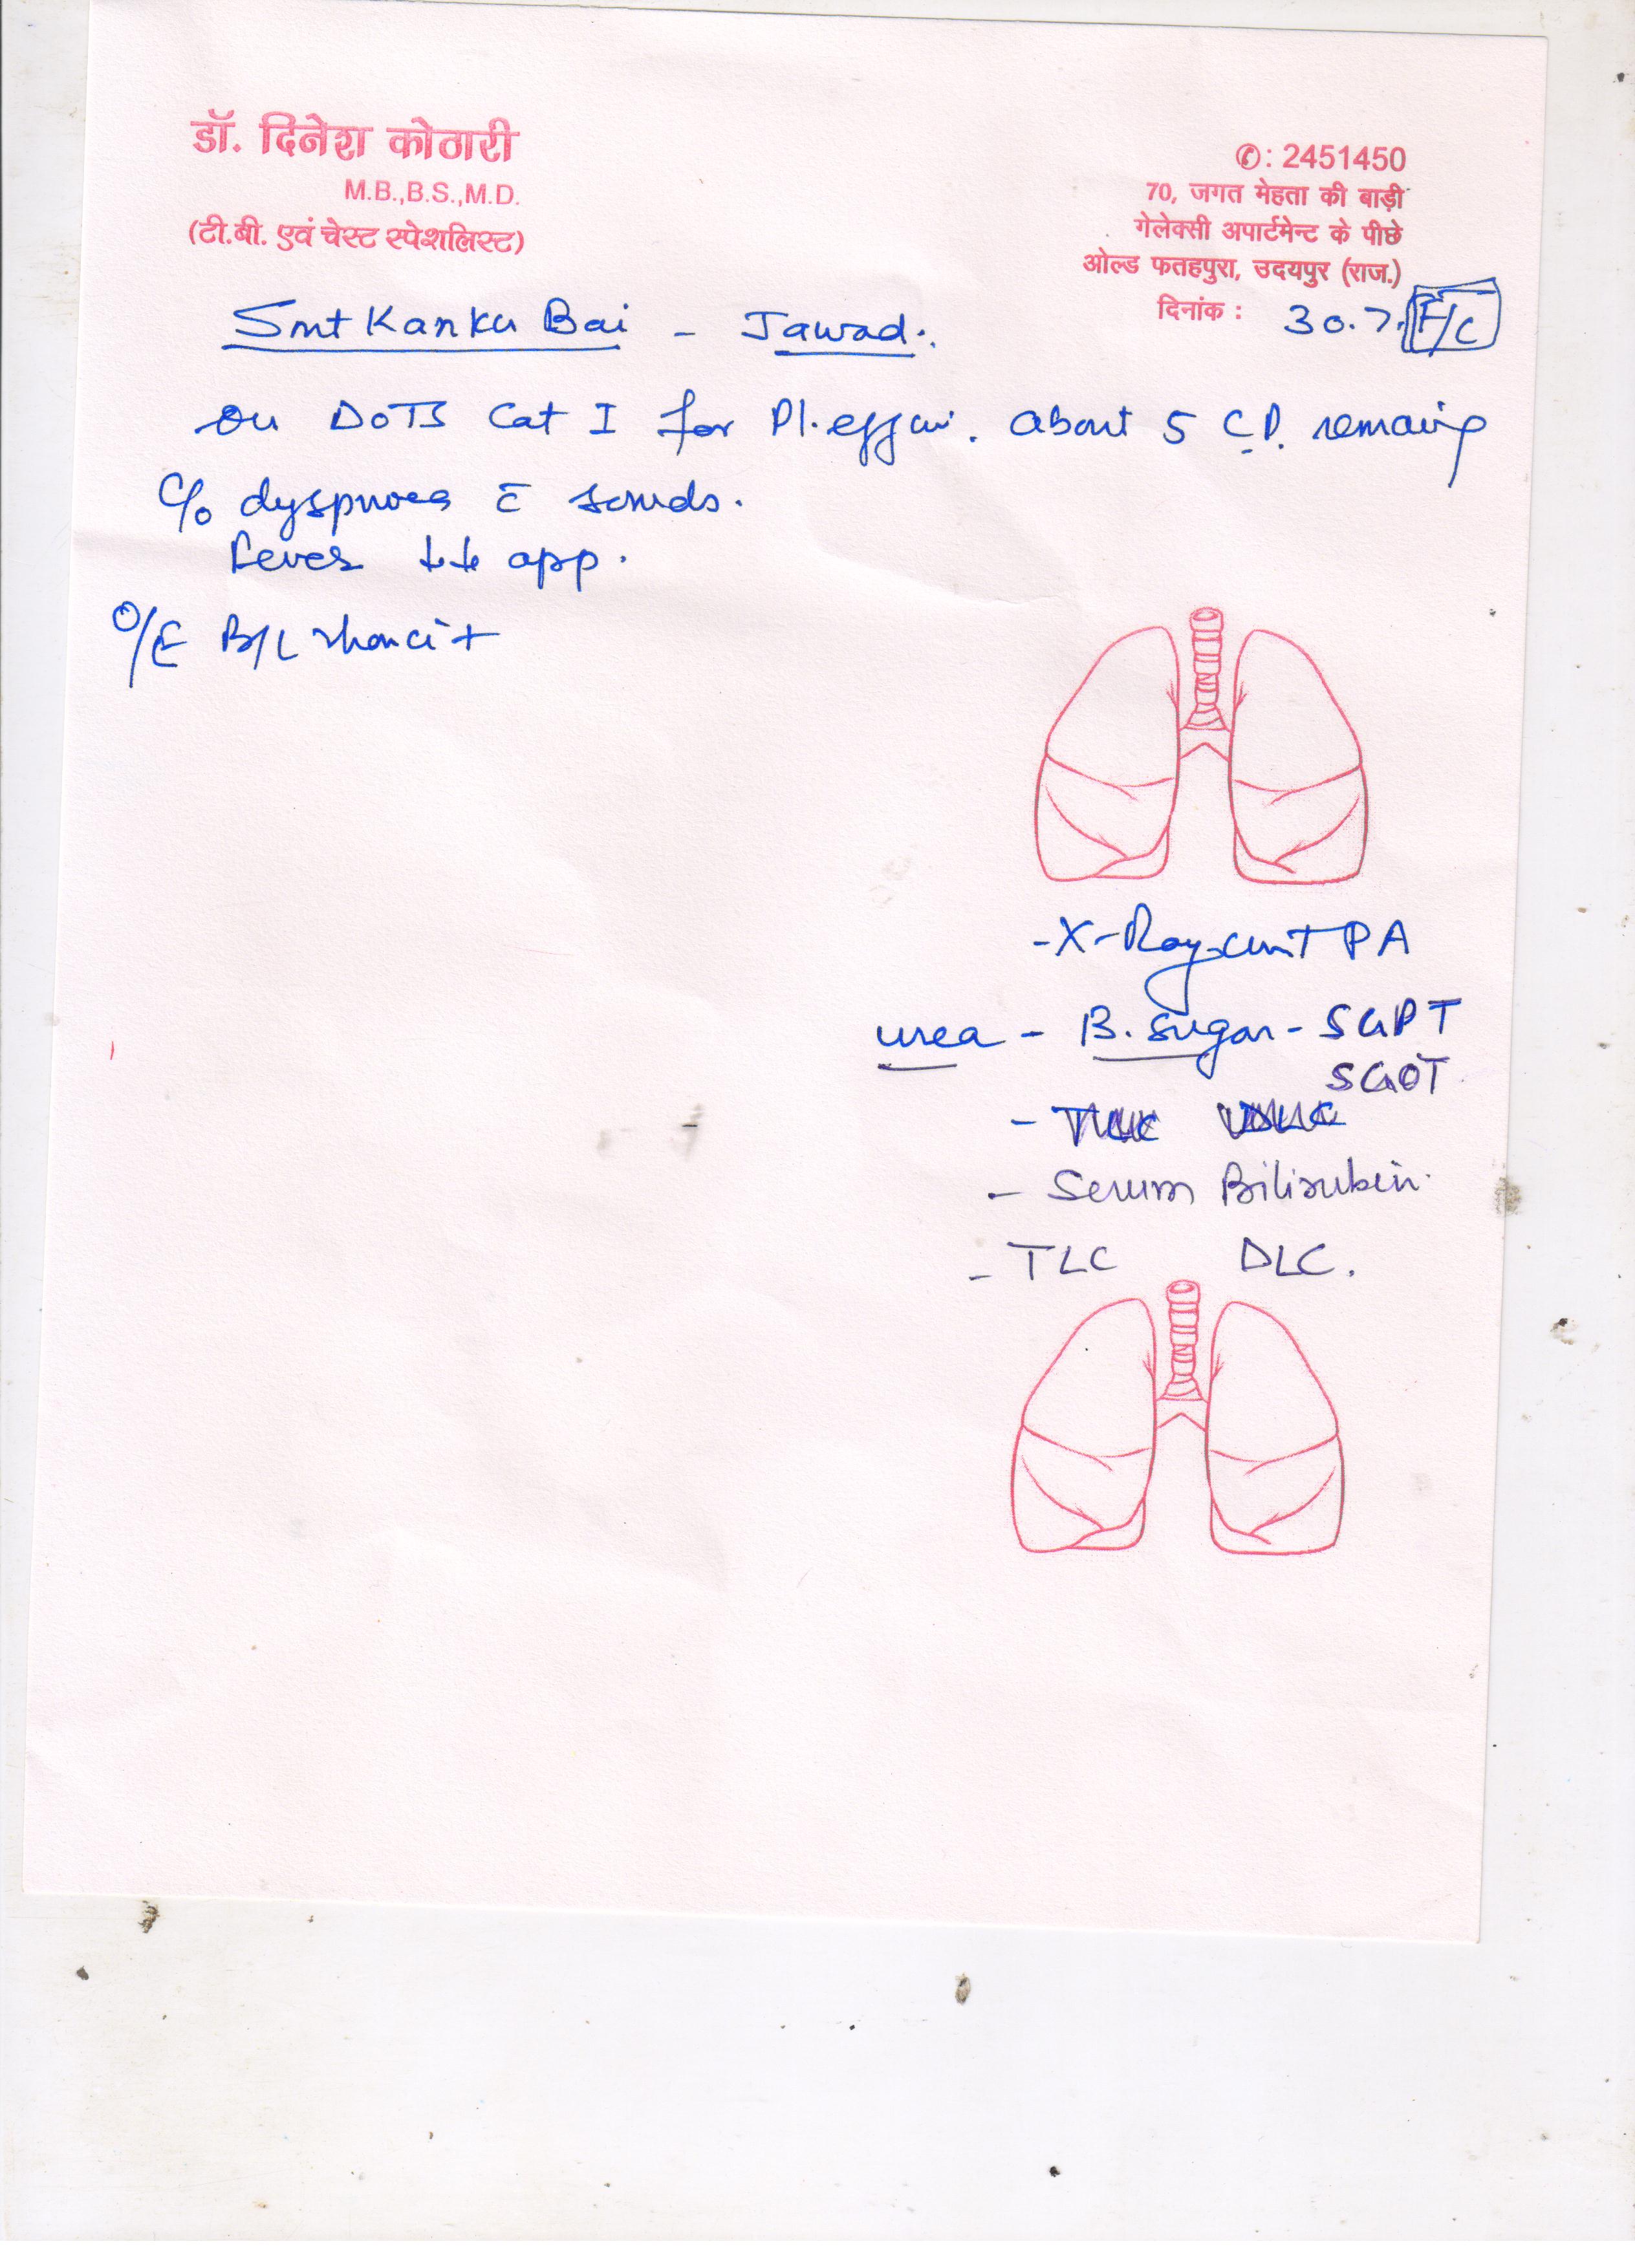 डॉ. दिनेश कोठारी
M.B.,B.S.,M.D.
(टी.बी. एवं चेस्ट स्पेशलिस्ट)
✆: 2451450
70, जगत मेहता की बाड़ी
गेलेक्सी अपार्टमेन्ट के पीछे
ओल्ड फतहपुरा, उदयपुर (राज.)
दिनांक : 30.7. F/C
Smt Kanku Bai - Jawad.
on DOTS Cat I for Pl. about 5 C.P. remaing
C/o dyspnoea c̄ sounds.
Fever ↓↓ app.
O/E B/L rhonci +
- X-Ray PA
urea - B. Sugar - SGPT
SGOT
- Serum Bilirubin.
- TLC DLC.